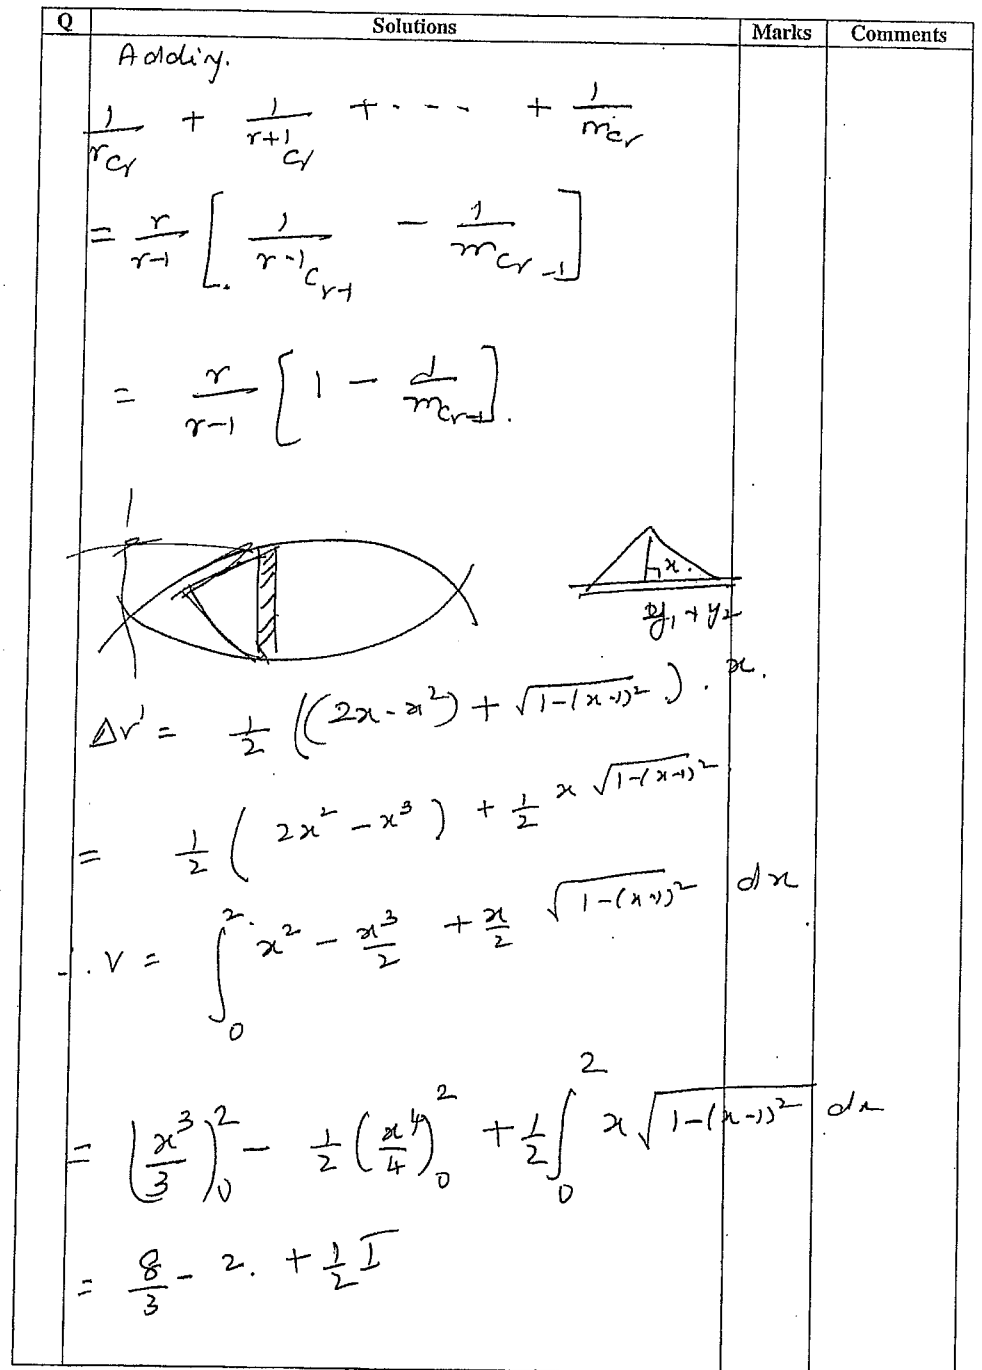 Q Solutions Marks Comments
Adding.
1/rCr + 1/r+1Cr + - - - + 1/mCr
= r/r-1 [ 1/r-1Cr-1 - 1/mCr-1 ]
= r/r-1 [ 1 - 1/mCr-1 ].
1
x.
y1 + y2
Δv' = 1/2 ((2x - x²) + √1-(x-1)² ) . x.
= 1/2 ( 2x² - x³ ) + 1/2 x √1-(x-1)²
∴ V = ∫₀² x² - x³/2 + x/2 √1-(x-1)² dx
= (x³/3)₀² - 1/2 (x⁴/4)₀² + 1/2 ∫₀² x √1-(x-1)² dx
= 8/3 - 2. + 1/2 I